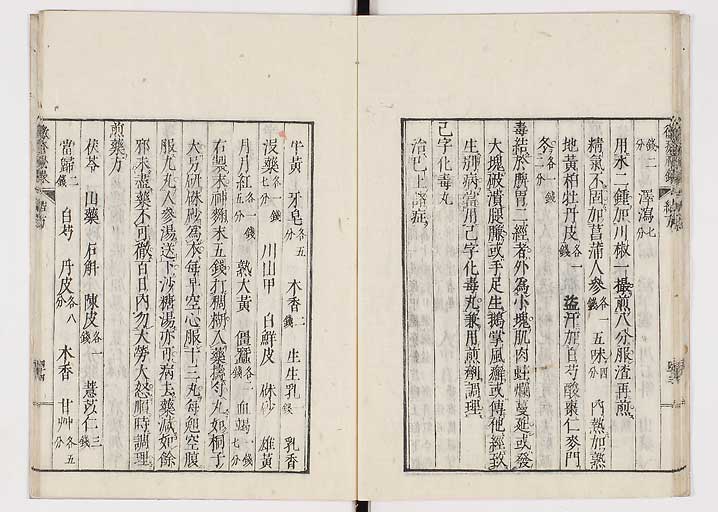 錢二分 澤瀉七分
用水二鍾加川椒一撮煎八分服渣再煎
精氣不固加菖蒲人參各一錢五味四分內熱加熟
地黃柏牡丹皮各一錢盜汗加白芍酸棗仁麥門
冬各一錢二分
毒結於脾胃二經者外為小塊肌肉蛀爛蔓延或發
大塊破潰腿臁或手足生鵝掌風癬或傳他經致
生別病當用己字化毒丸兼用煎劑調理
己字化毒丸
治巳上諸症
牛黃 牙皂各五分 木香二錢 生生乳一錢 乳香
沒藥各一錢七分 川山甲 白鮮皮 硃砂 雄黃
月月紅各一錢五分 熟大黃 僵蠶各一錢 血竭一錢七分
右製末神麴末五錢打稠糊入藥擣勻丸如桐子
大另研硃砂為衣每早空心服十三丸每勉空腹
服九丸人參湯送下沙糖湯亦可病去藥減如餘
邪未盡藥不可徹百日內勿大勞大怒順時調理
煎藥方
茯苓 山藥 石斛 陳皮各一錢 薏苡仁三
當歸二錢 白芍 丹皮各八分 木香 甘艸各五分